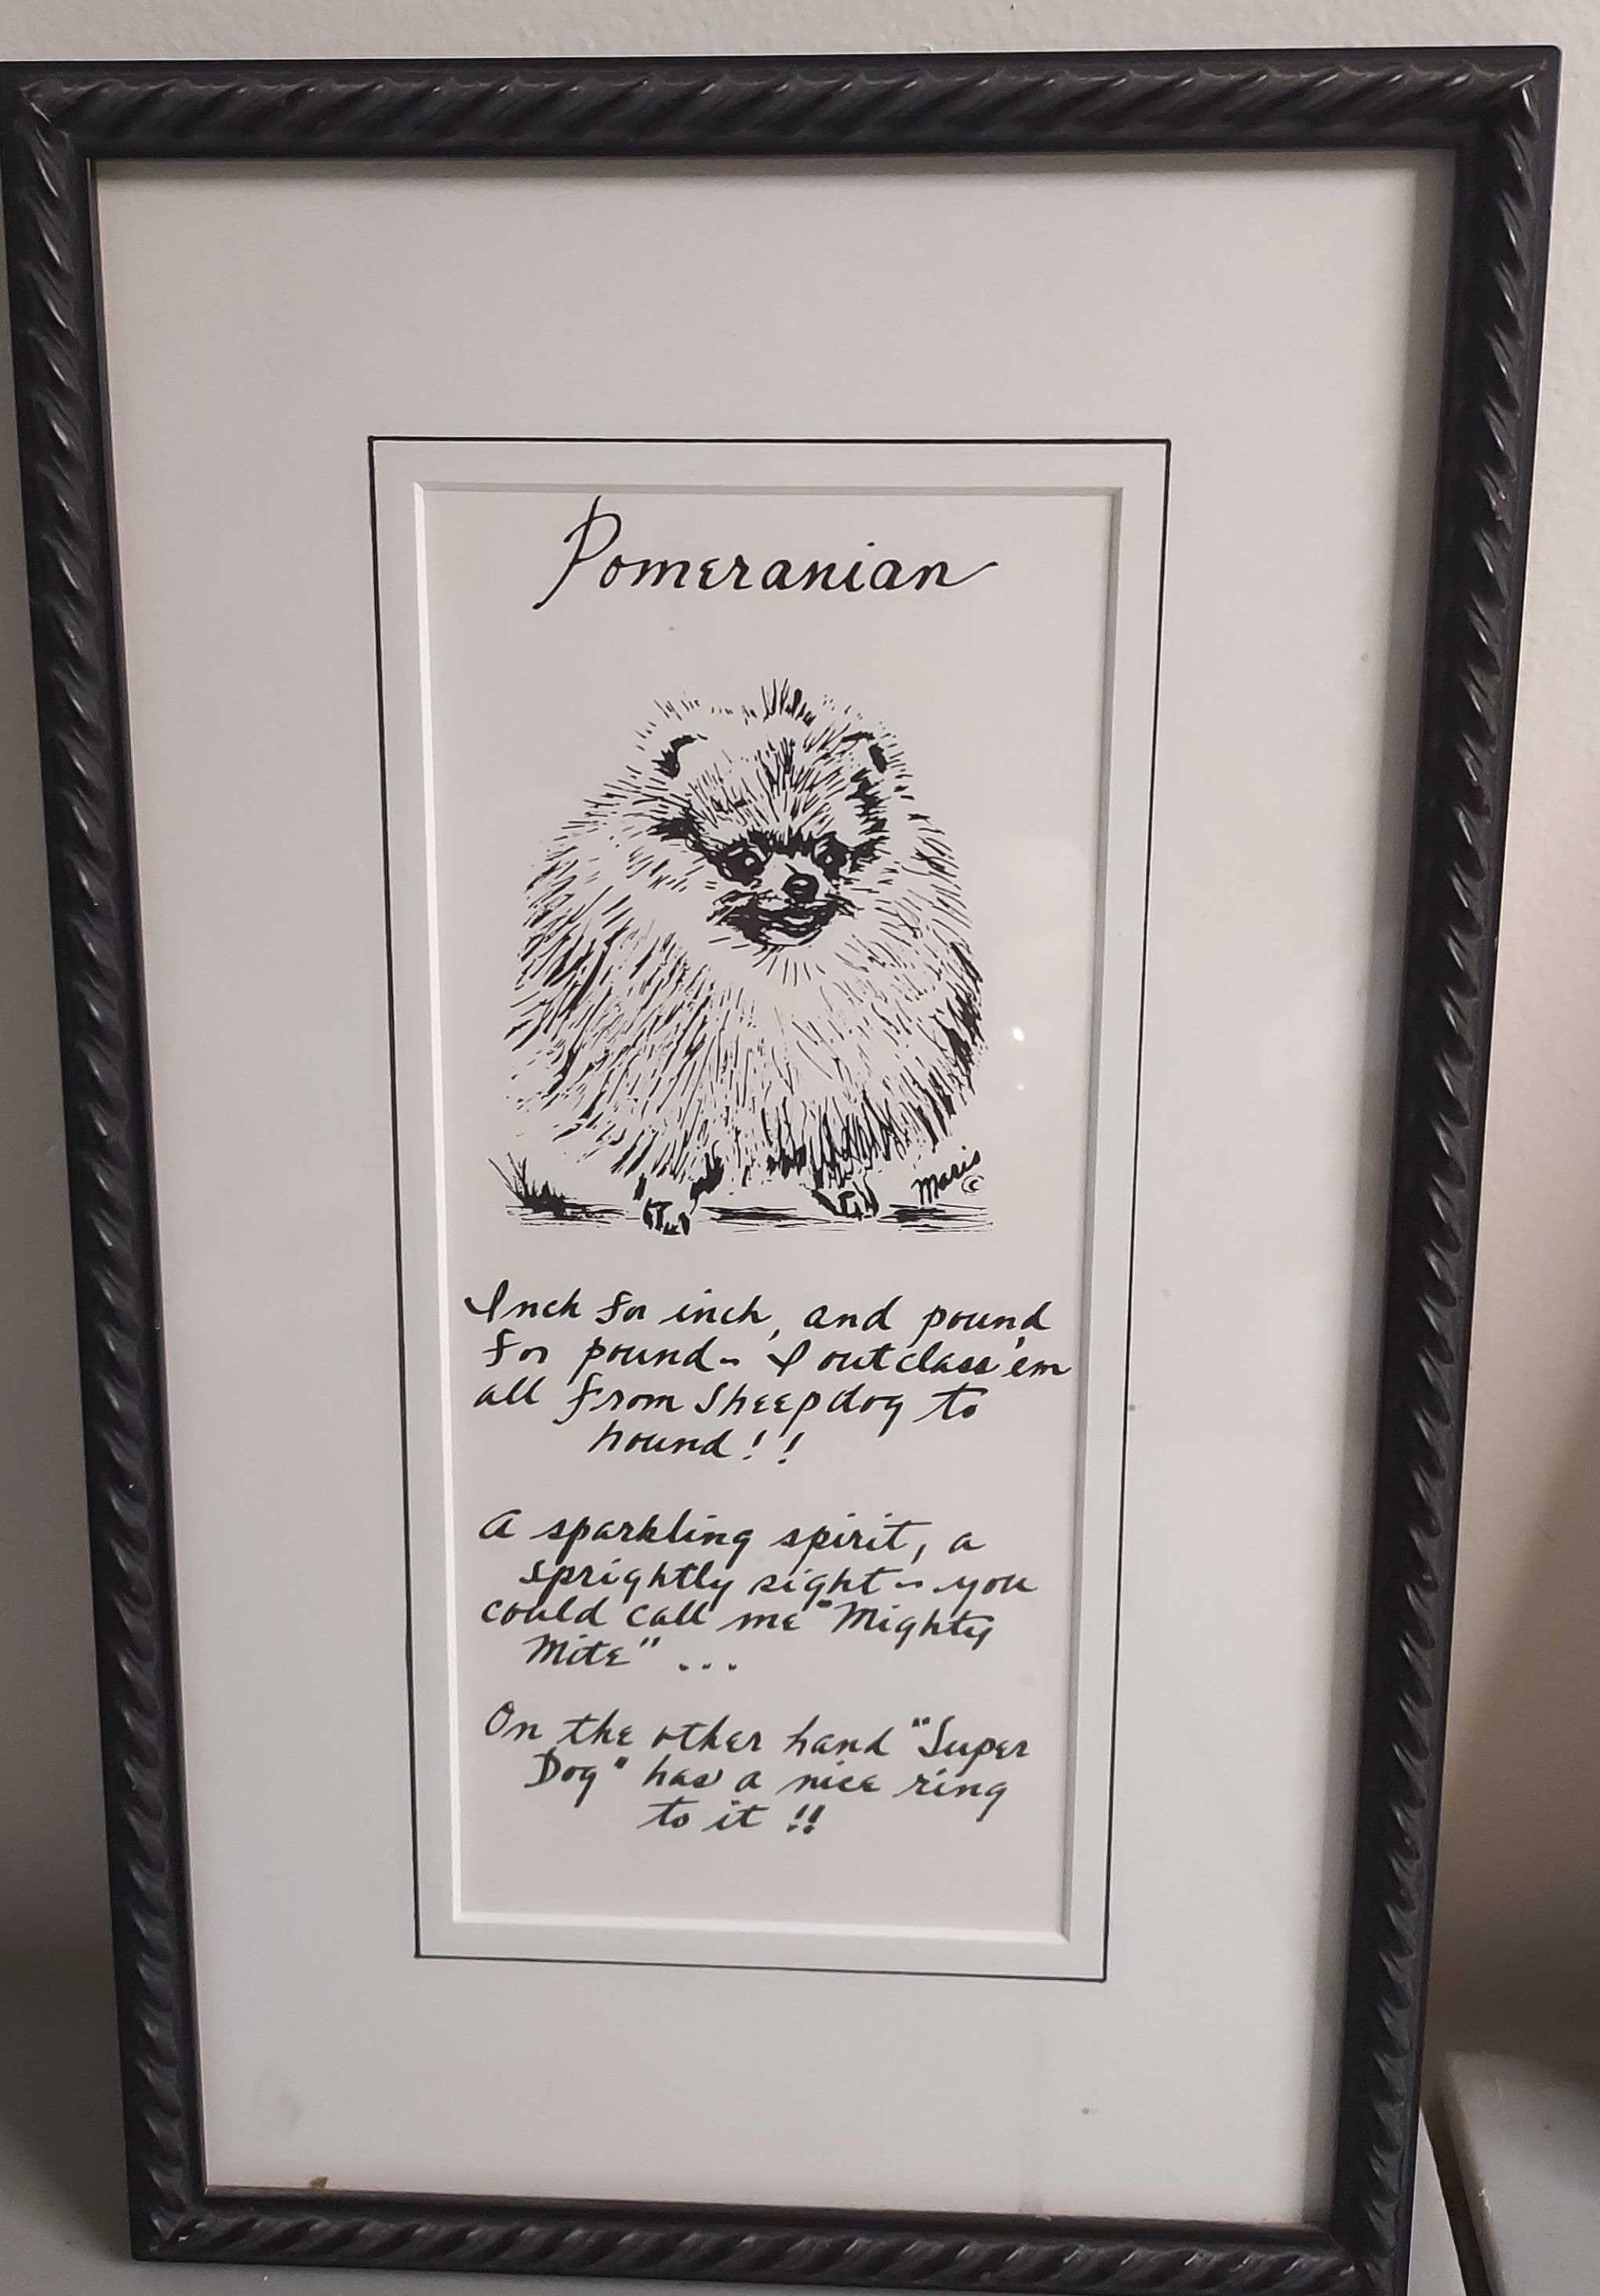 Pomeranian
Maris ©
Inch for inch, and pound
for pound~ I outclass 'em
all from Sheepdog to
hound!!
A sparkling spirit, a
sprightly sight~ you
could call me "Mighty
Mite" ...
On the other hand "Super
Dog" has a nice ring
to it!!